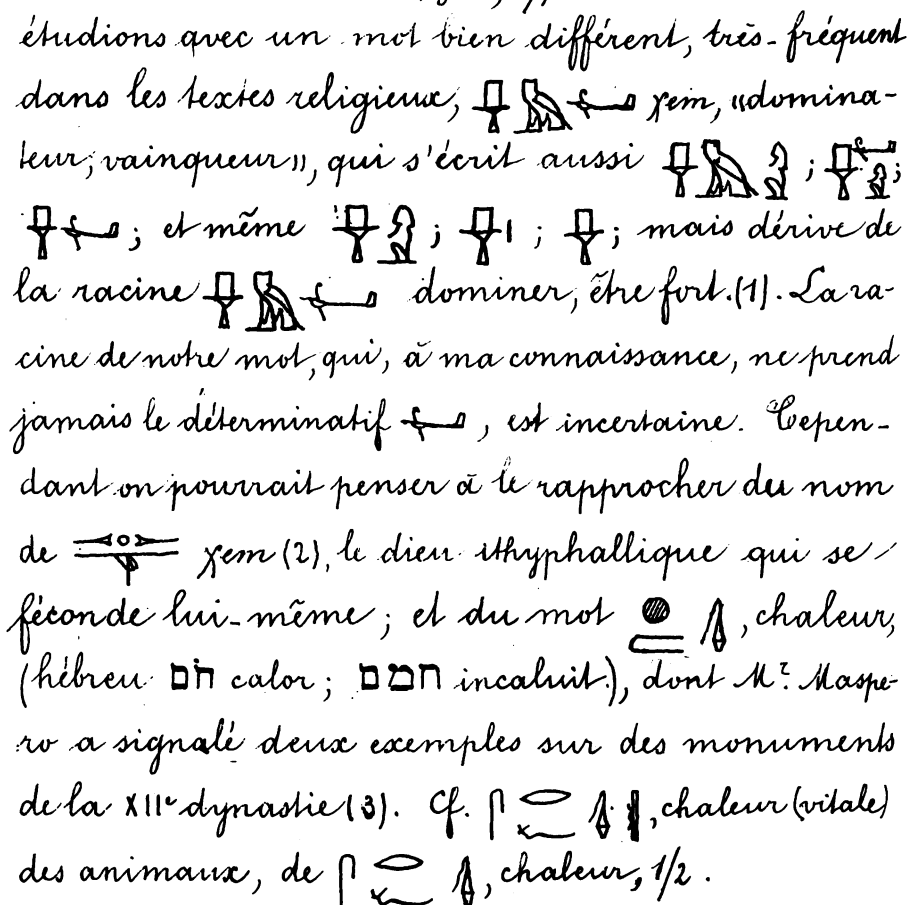 étudions avec un mot bien différent, très-fréquent
dans les textes religieux, χem, «domina-
teur, vainqueur», qui s'écrit aussi ; ;
; et même ; ; ; mais dérive de
la racine dominer, être fort.(1). La ra-
cine de notre mot, qui, à ma connaissance, ne prend
jamais le déterminatif , est incertaine. Cepen-
dant on pourrait penser à le rapprocher du nom
de χem (2), le dieu ithyphallique qui se
féconde lui-même ; et du mot , chaleur,
(hébreu חֹם calor ; חמם incaluit.), dont Mr. Maspe-
ro a signalé deux exemples sur des monuments
de la XIIe dynastie (3). Cf. , chaleur (vitale)
des animaux, de , chaleur, 1/2.